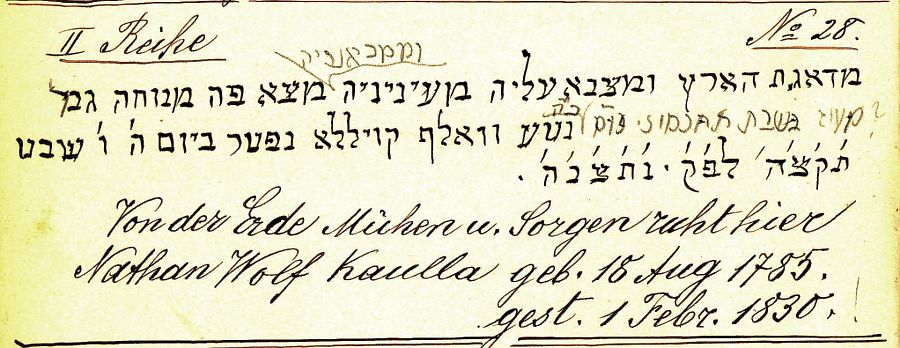 II Reihe No 28.
וממכאוביה
מדאגת הארץ ומצבא עליה מעיניניה מצא פה מנוחה גבר
בשבת תחכמוני נטע וואלף קויללא נפטר ביום ה' ו' שבט
ת'ק'צ'ה' לפ'ק'. נ'ת'צ'ב'ה'.
Von der Erde Mühen u. Sorgen ruht hier
Nathan Wolf Kaulla geb. 18 Aug 1785.
gest. 1 Febr. 1830. !